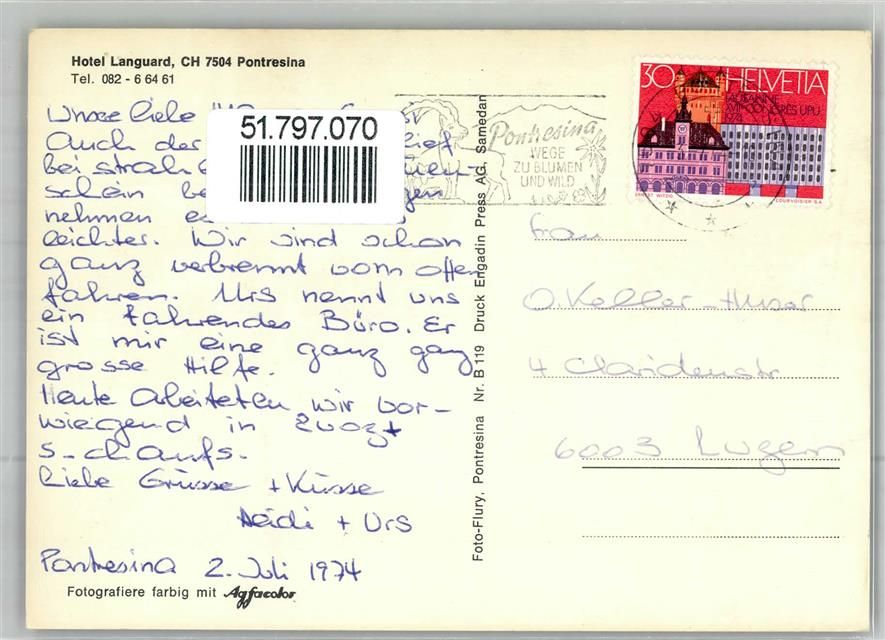 Hotel Languard, CH 7504 Pontresina
Tel. 082 - 6 64 61
Unsere liebe
Auch der
bei strah
schein
nehmen
leichter. Wir sind schon
ganz verbrennt vom offen
fahren. Urs nennt uns
ein fahrendes Büro. Er
ist mir eine ganz ganz
grosse Hilfe.
Heute arbeiteten wir vor-
wiegend in Zuoz +
S-chanfs.
Liebe Grüsse + Küsse
Heidi + Urs
Pontresina 2. Juli 1974
Fotografiere farbig mit Agfacolor
51.797.070
Foto-Flury, Pontresina Nr. B 119 Druck Engadin Press AG, Samedan
Pontresina
WEGE
ZU BLUMEN
UND WILD
30 HELVETIA
LAUSANNE
XVIIe CONGRÈS UPU
1974
ERNST WITZIG
COURVOISIER S.A.
Frau
O. Keller-Huser
4 Claridenstr
6003 Luzern